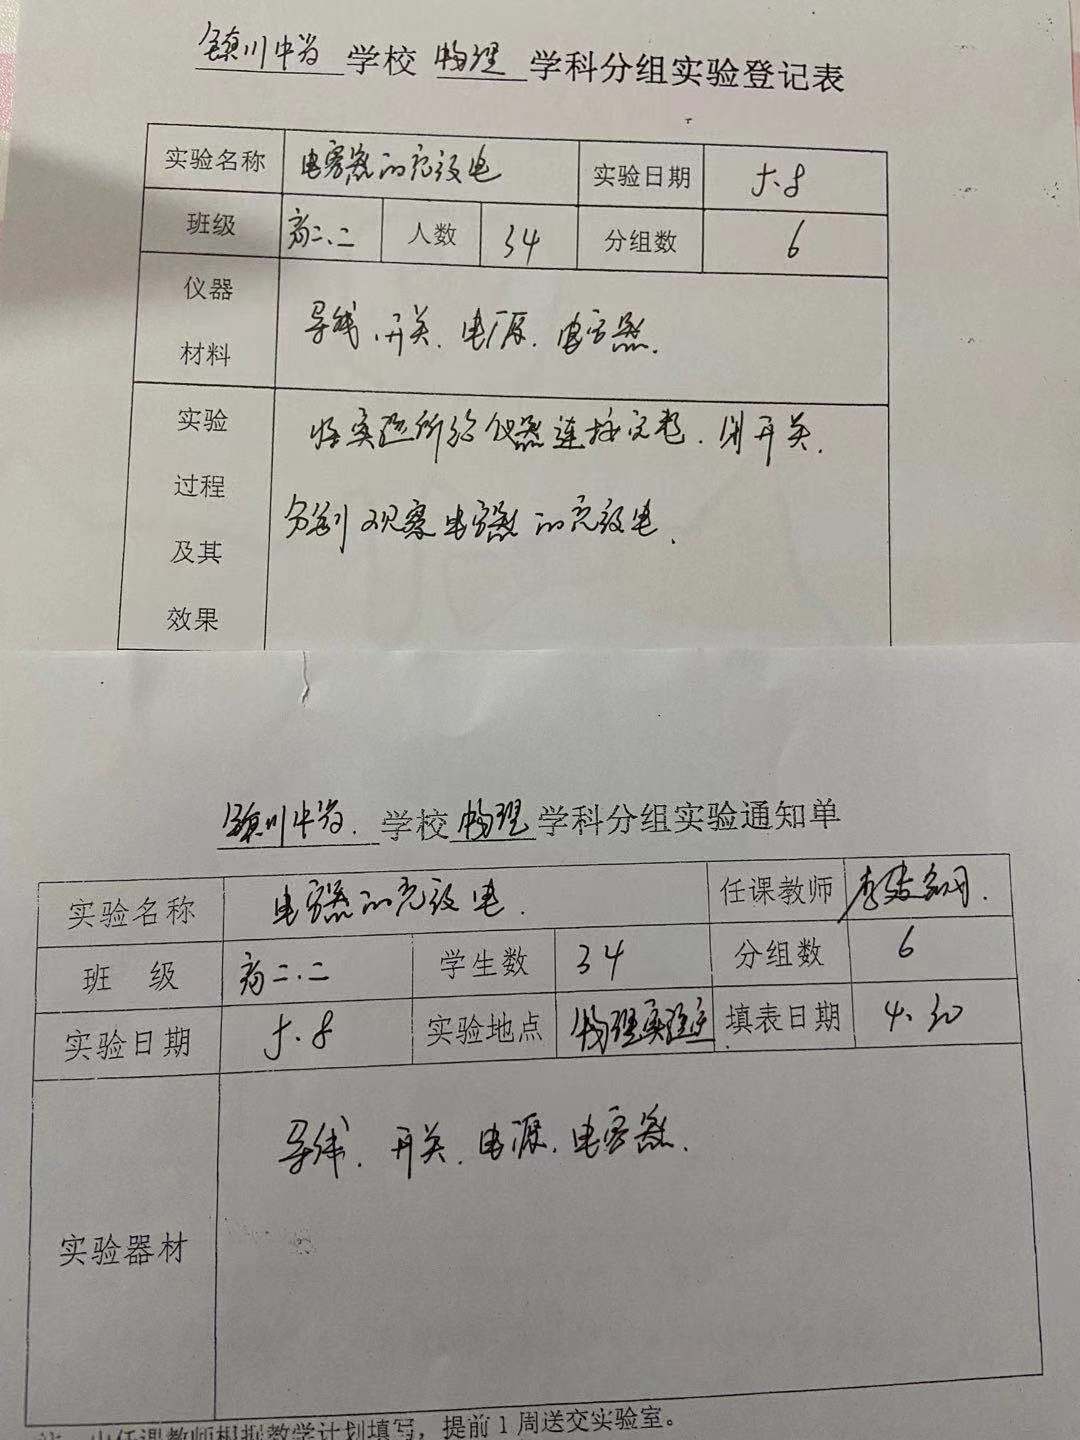 镇川中学 学校 物理 学科分组实验登记表
实验名称 电容器的充放电 实验日期 5.8
班级 高二.二 人数 34 分组数 6
仪器材料 导线、开关、电源、电容器.
实验过程及其效果 将实验所给仪器连接完整、闭开关.
分别观察电容器的充放电.
镇川中学. 学校 物理 学科分组实验通知单
实验名称 电容器的充放电. 任课教师
班 级 高二.二 学生数 34 分组数 6
实验日期 5.8 实验地点 物理实验室 填表日期 4.30
实验器材 导线、开关、电源、电容器.
由任课教师根据教学计划填写，提前1周送交实验室。